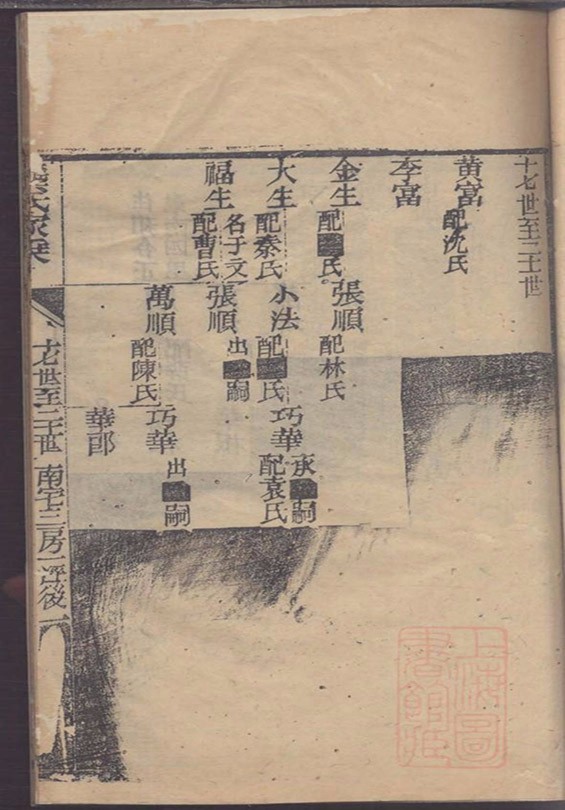 十七世至二十世
黄富
配沈氏
李富
金生
配■氏
張順
配林氏
大生
配秦氏
小法
配■氏
巧華
承■嗣
配袁氏
福生
名于文
配曹氏
張順
出■嗣
萬順
配陳氏
巧華
出■嗣
華郎
氏家乗
十七世至二十世
南宅三房
後
上海圖書館藏